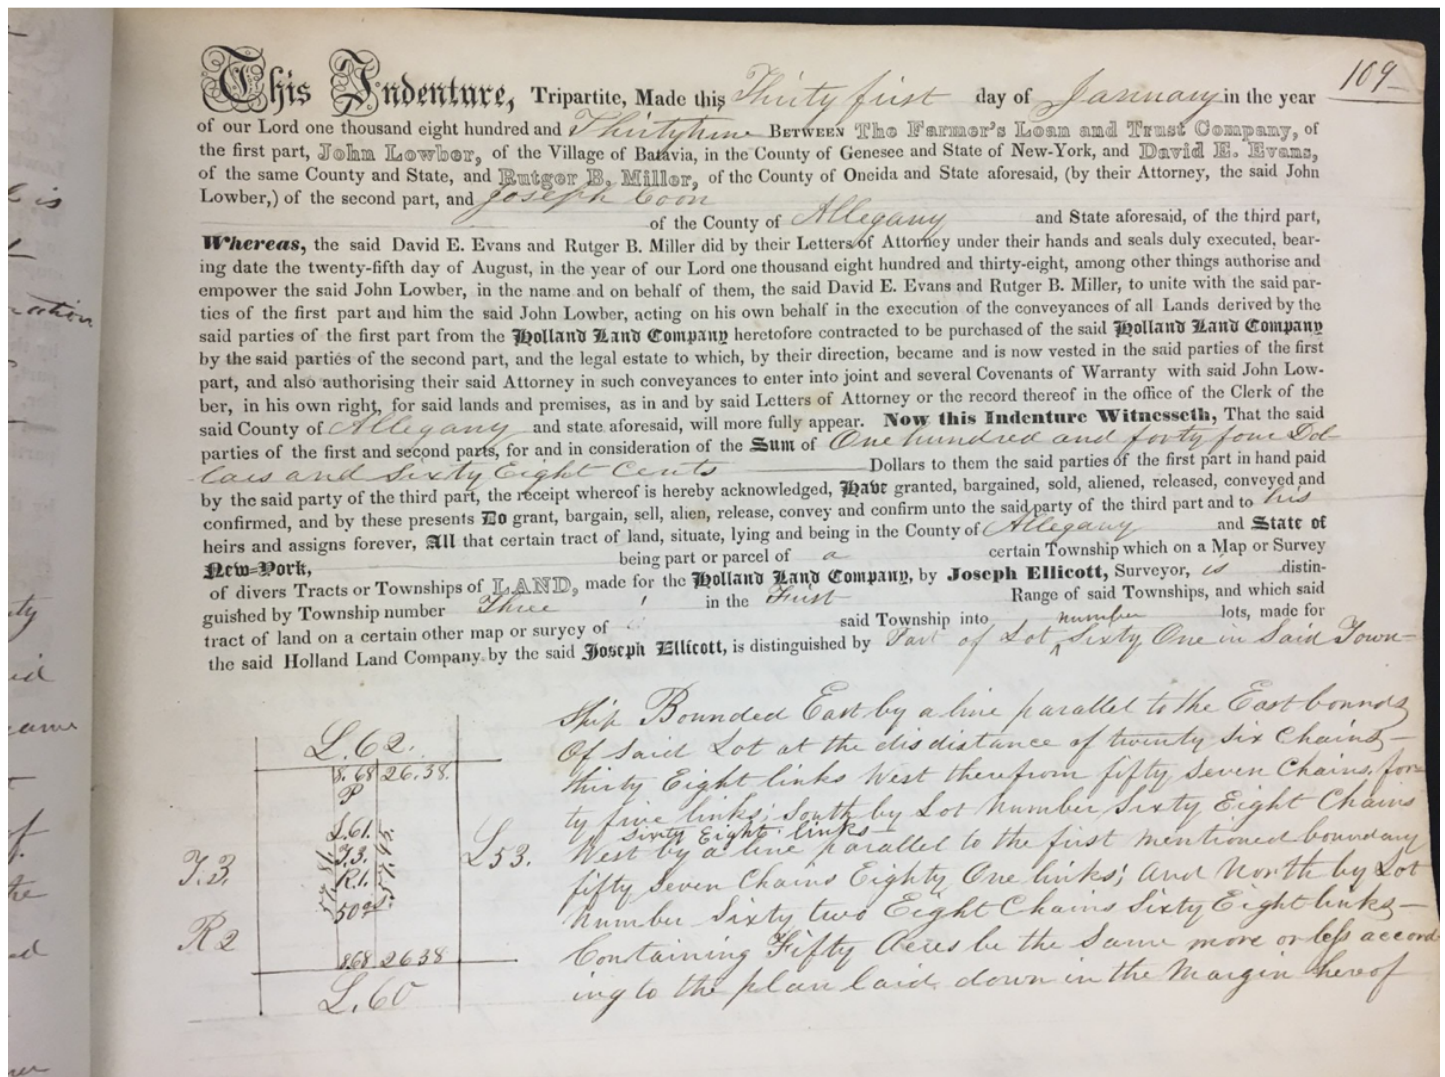 109
This Indenture, Tripartite, Made this Thirty first day of January in the year
of our Lord one thousand eight hundred and Thirty nine BETWEEN The Farmer's Loan and Trust Company, of
the first part, John Lowber, of the Village of Batavia, in the County of Genesee and State of New-York, and David E. Evans,
of the same County and State, and Rutger B. Miller, of the County of Oneida and State aforesaid, (by their Attorney, the said John
Lowber,) of the second part, and Joseph Coon
of the County of Allegany and State aforesaid, of the third part,
Whereas, the said David E. Evans and Rutger B. Miller did by their Letters of Attorney under their hands and seals duly executed, bear-
ing date the twenty-fifth day of August, in the year of our Lord one thousand eight hundred and thirty-eight, among other things authorise and
empower the said John Lowber, in the name and on behalf of them, the said David E. Evans and Rutger B. Miller, to unite with the said par-
ties of the first part and him the said John Lowber, acting on his own behalf in the execution of the conveyances of all Lands derived by the
said parties of the first part from the Holland Land Company heretofore contracted to be purchased of the said Holland Land Company
by the said parties of the second part, and the legal estate to which, by their direction, became and is now vested in the said parties of the first
part, and also authorising their said Attorney in such conveyances to enter into joint and several Covenants of Warranty with said John Low-
ber, in his own right, for said lands and premises, as in and by said Letters of Attorney or the record thereof in the office of the Clerk of the
said County of Allegany and state aforesaid, will more fully appear. Now this Indenture Witnesseth, That the said
parties of the first and second parts, for and in consideration of the Sum of One hundred and forty four Dol-
lars and Sixty Eight Cents Dollars to them the said parties of the first part in hand paid
by the said party of the third part, the receipt whereof is hereby acknowledged, Have granted, bargained, sold, aliened, released, conveyed and
confirmed, and by these presents Do grant, bargain, sell, alien, release, convey and confirm unto the said party of the third part and to his
heirs and assigns forever, All that certain tract of land, situate, lying and being in the County of Allegany and State of
New-York, being part or parcel of a certain Township which on a Map or Survey
of divers Tracts or Townships of LAND, made for the Holland Land Company, by Joseph Ellicott, Surveyor, is distin-
guished by Township number Three in the First Range of said Townships, and which said
tract of land on a certain other map or survey of said Township into lots, made for
the said Holland Land Company by the said Joseph Ellicott, is distinguished by Part of Lot number Sixty One in Said Town-
ship Bounded East by a line parallel to the East bounds
Of Said Lot at the disdistance of twenty Six Chains
thirty Eight links West therefrom fifty Seven Chains for-
ty five links; South by Lot Number Sixty Eight Chains
Sixty Eight links
West by a line parallel to the first mentioned boundary
fifty Seven Chains Eighty One links; And North by Lot
Number Sixty two Eight Chains Sixty Eight links
Containing Fifty Acres be the Same more or less accord-
ing to the plan laid down in the Margin hereof
L.62.
8.68 26.38.
P
L.61.
T.3.
R.1.
50a
57.81
57.45.
L53.
T.3.
R2
8.68 26 38
L.60